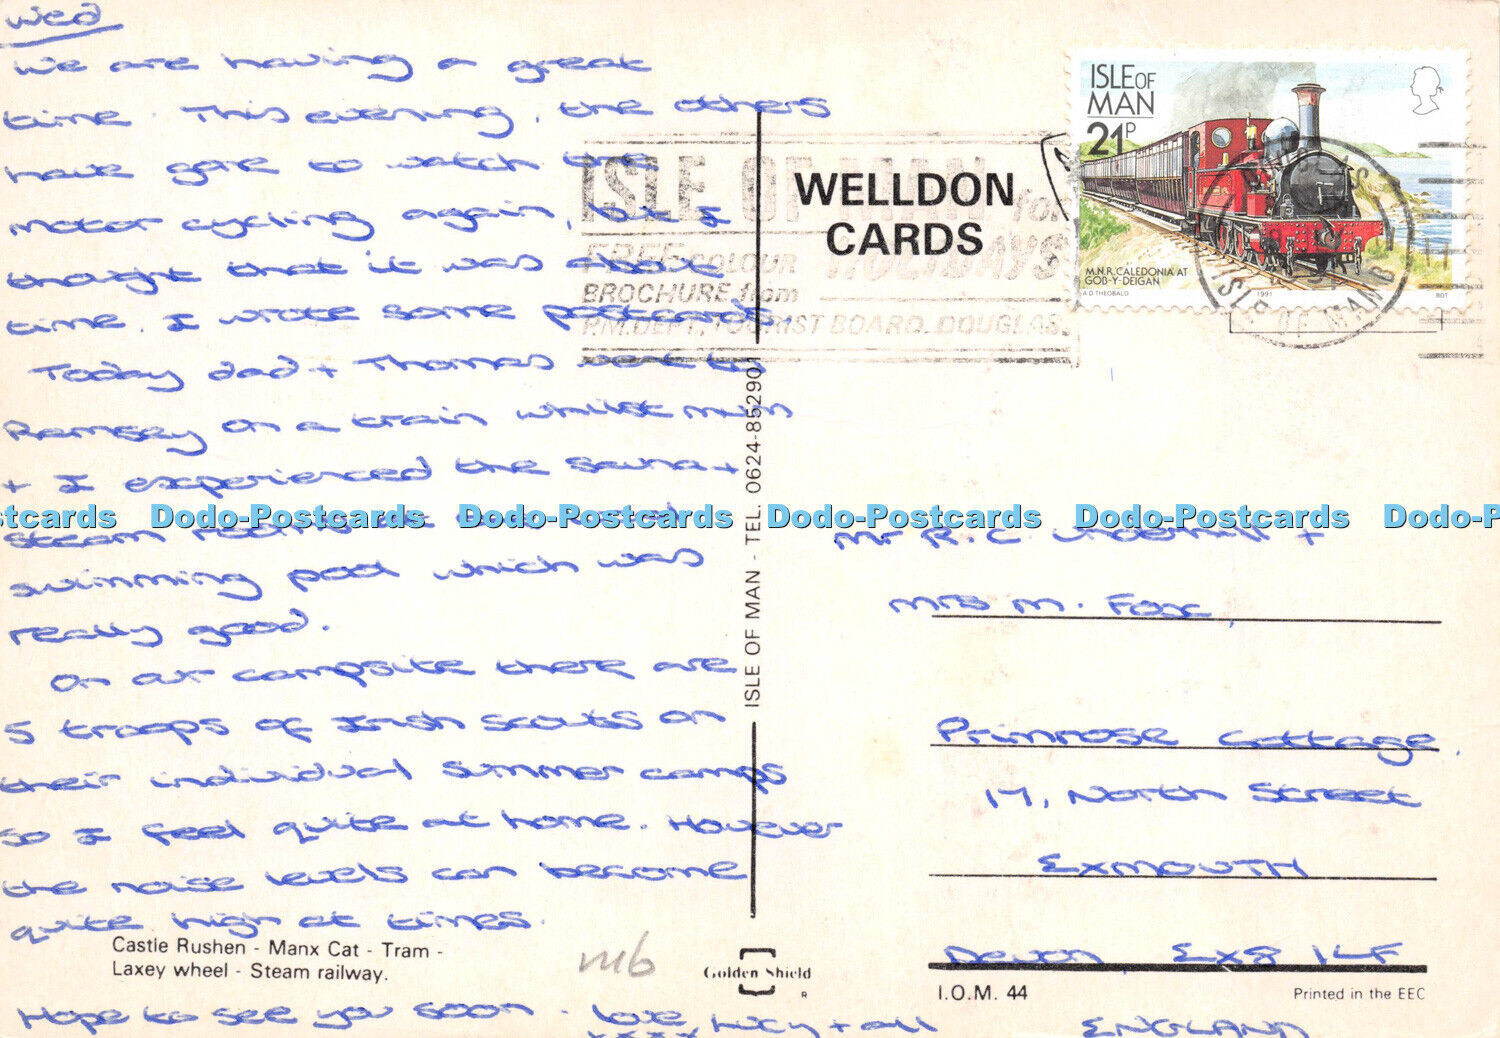 Wed
We are having a great
time. This evening, the others
have gone to watch the
motor cycling again, but I
thought that it was about
time I wrote some postcards.
Today dad + Thomas went to
Ramsey on a train whilst mum
+ I experienced the sauna +
steam rooms at the
swimming pool which was
really good.
On our campsite there are
5 troops of Irish scouts on
their individual summer camps
so I feel quite at home. However
the noise levels can become
quite high at times.
Castle Rushen - Manx Cat - Tram -
Laxey wheel - Steam railway.
Hope to see you soon. love Lucy + all
xxxx
mb
WELLDON
CARDS
ISLE OF MAN - TEL. 0624-852901
Golden Shield
R
ISLE OF MAN for
FREE COLOUR HOLIDAYS
BROCHURE from
P.M. DEPT, TOURIST BOARD, DOUGLAS
ISLE OF
MAN
21P
M.N.R. CALEDONIA AT
GOB-Y-DEIGAN
A D THEOBALD 1991 BDT
ISLE OF MAN
Mr R. C. Underhill +
Mrs M. Fox,
Primrose Cottage,
17, North Street
EXMOUTH
Devon EX8 1LF
I.O.M. 44
Printed in the EEC
ENGLAND
stcards Dodo-Postcards Dodo-Postcards Dodo-Postcards Dodo-Postcards Dodo-P